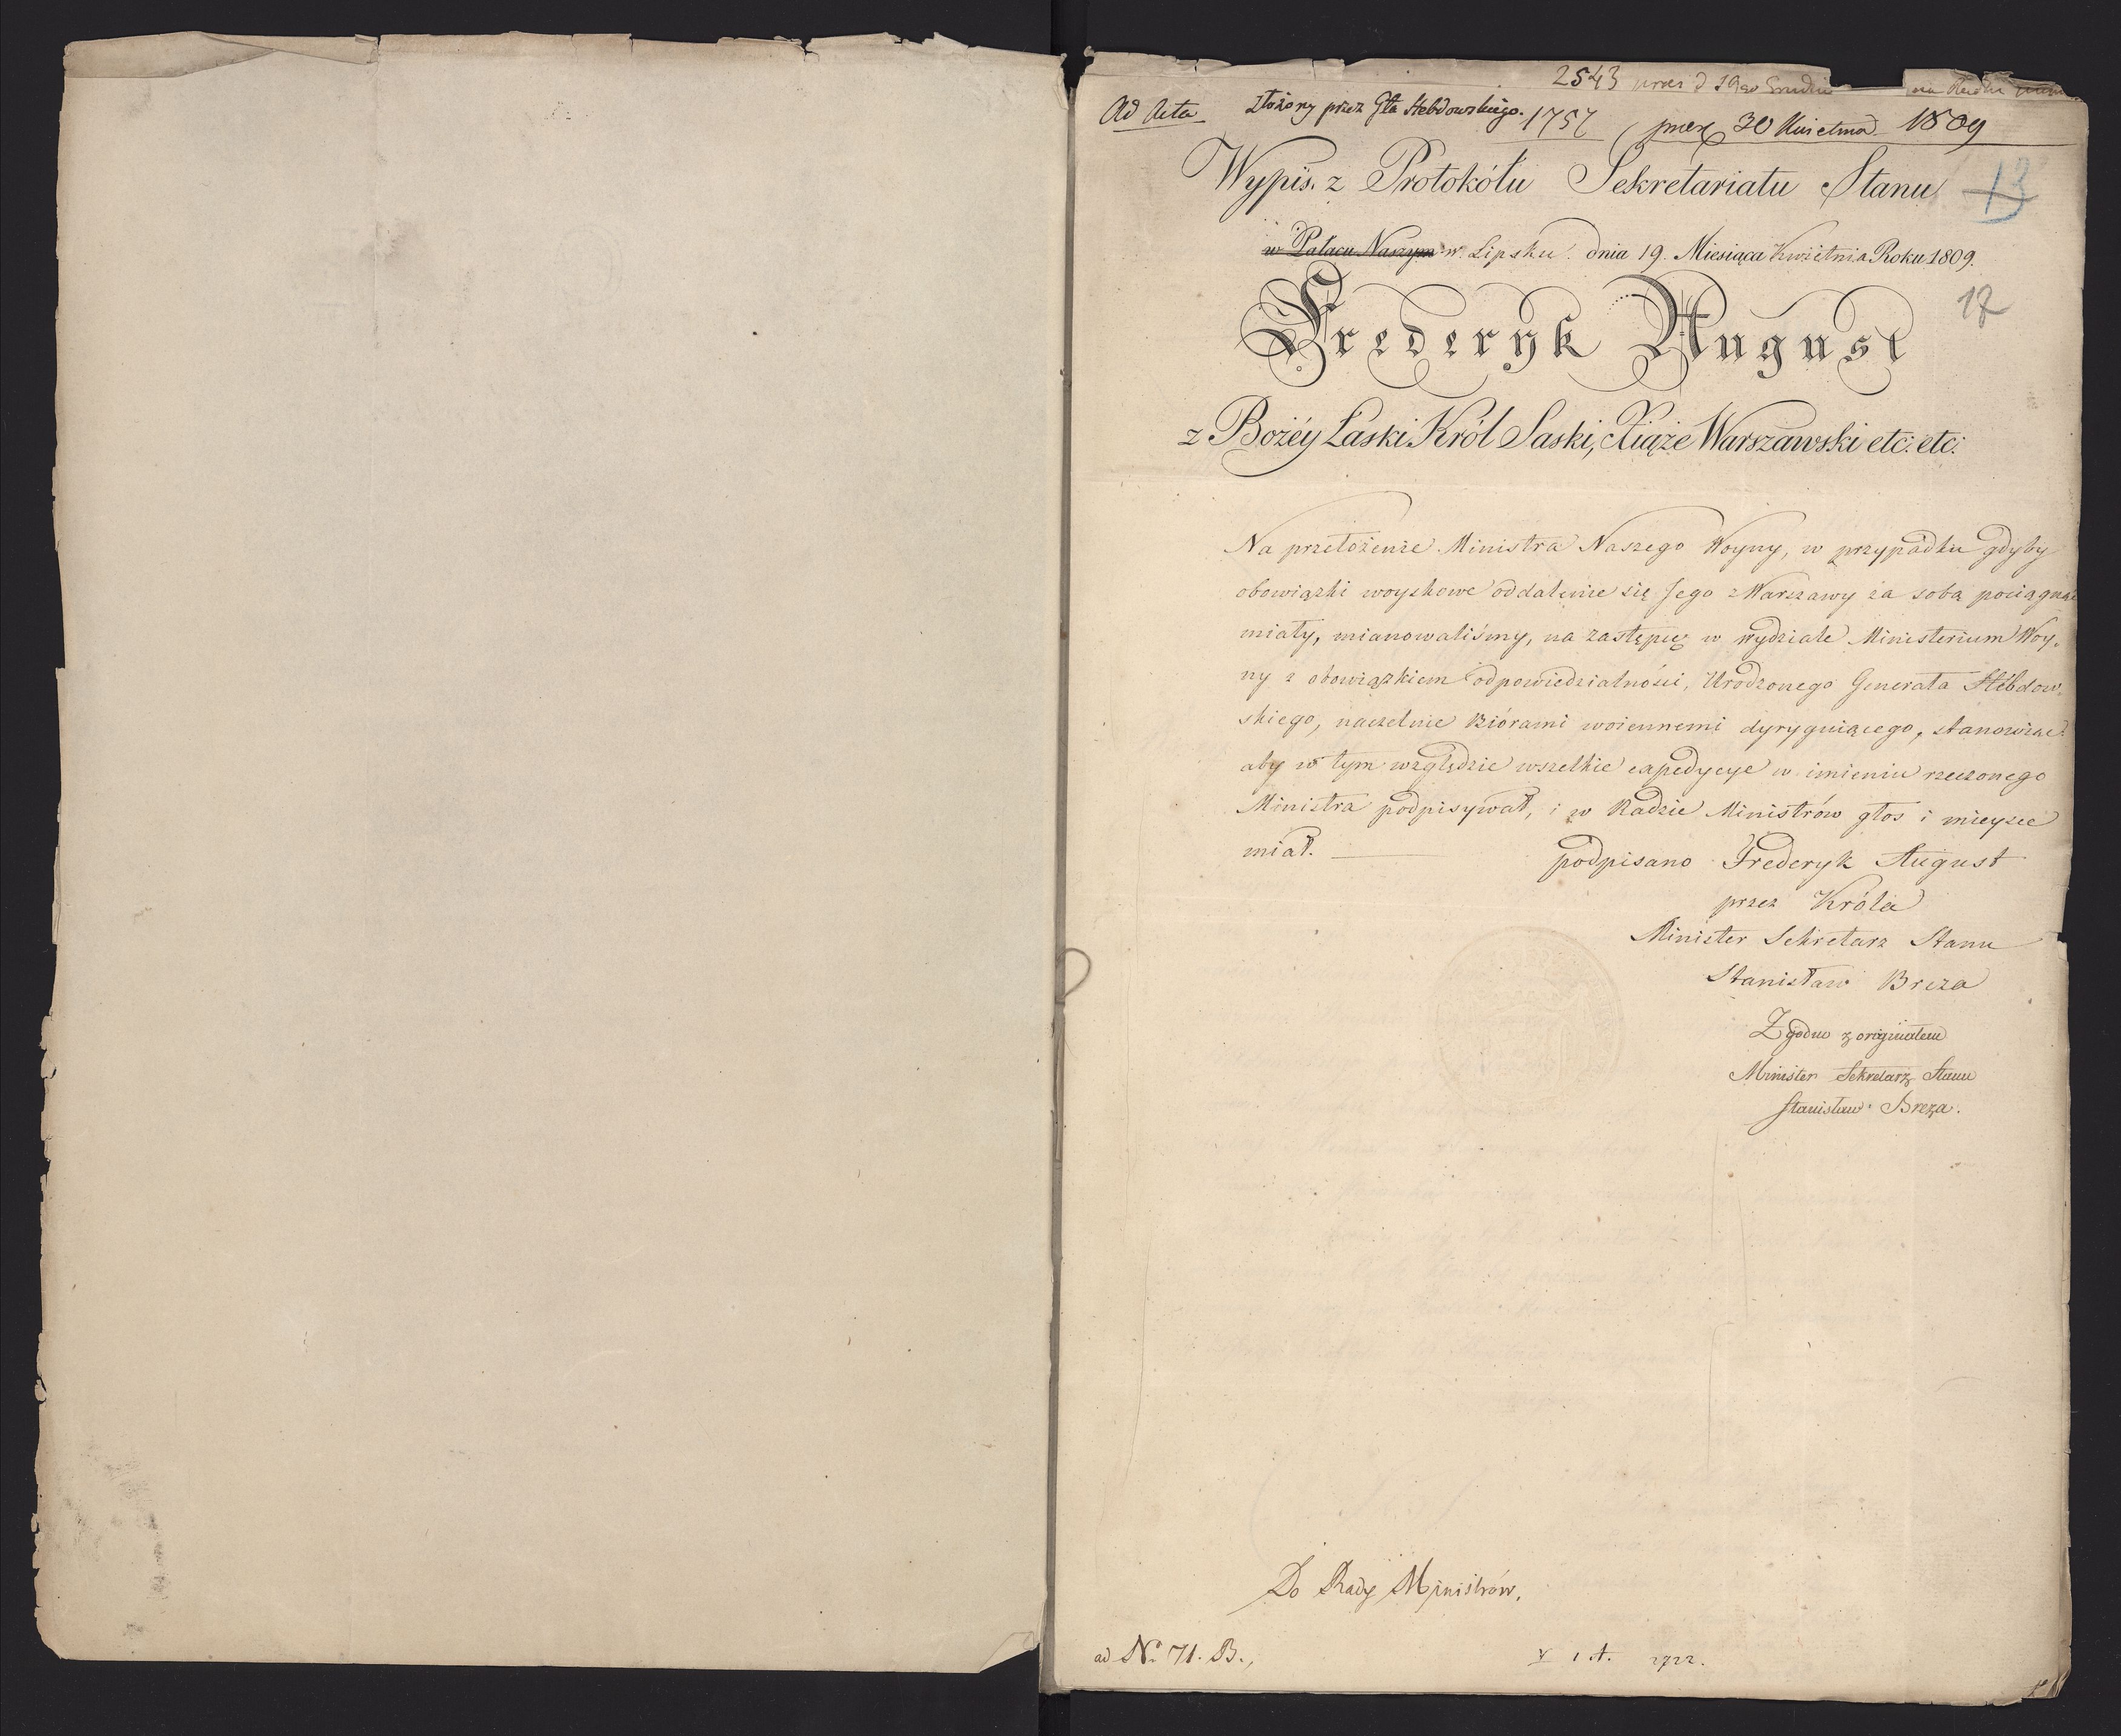 2543
Ad Acta złożony przez Gła Hebdowskiego. 1757 30 Kwietnia 1809
Wypis. z Protokółu Sekretariatu Stanu 13
w Pałacu Naszym w Lipsku dnia 19. Miesiąca Kwietnia Roku 1809.
17
Fryderyk August
z Bożéy Łaski Król Saski, Xiąże Warszawski etc: etc:
Na przełożenie Ministra Naszego Woyny, w przypadku gdyby
obowiązki woyskowe oddalenie się Jego z Warszawy za sobą pociągnąć
miały, mianowaliśmy, na zastępcę w wydziale Ministerium Woy-
ny z obowiązkiem odpowiedzialności, Urodzonego Generała Hebdow-
skiego, naczelnie Biórami woiennemi dyryguiącego, stanowiąc
aby w tym względzie wszelkie expedycye w imieniu rzeczonego
Ministra podpisywał, i w Radzie Ministrów głos i mieysce
miał. podpisano Frederyk August
przez Króla
Minister Sekretarz Stanu
Stanisław Breza
Zgodno z originałem
Minister Sekretarz Stanu
Stanisław Breza.
Do Rady Ministrów.
ad No. 71. B.,